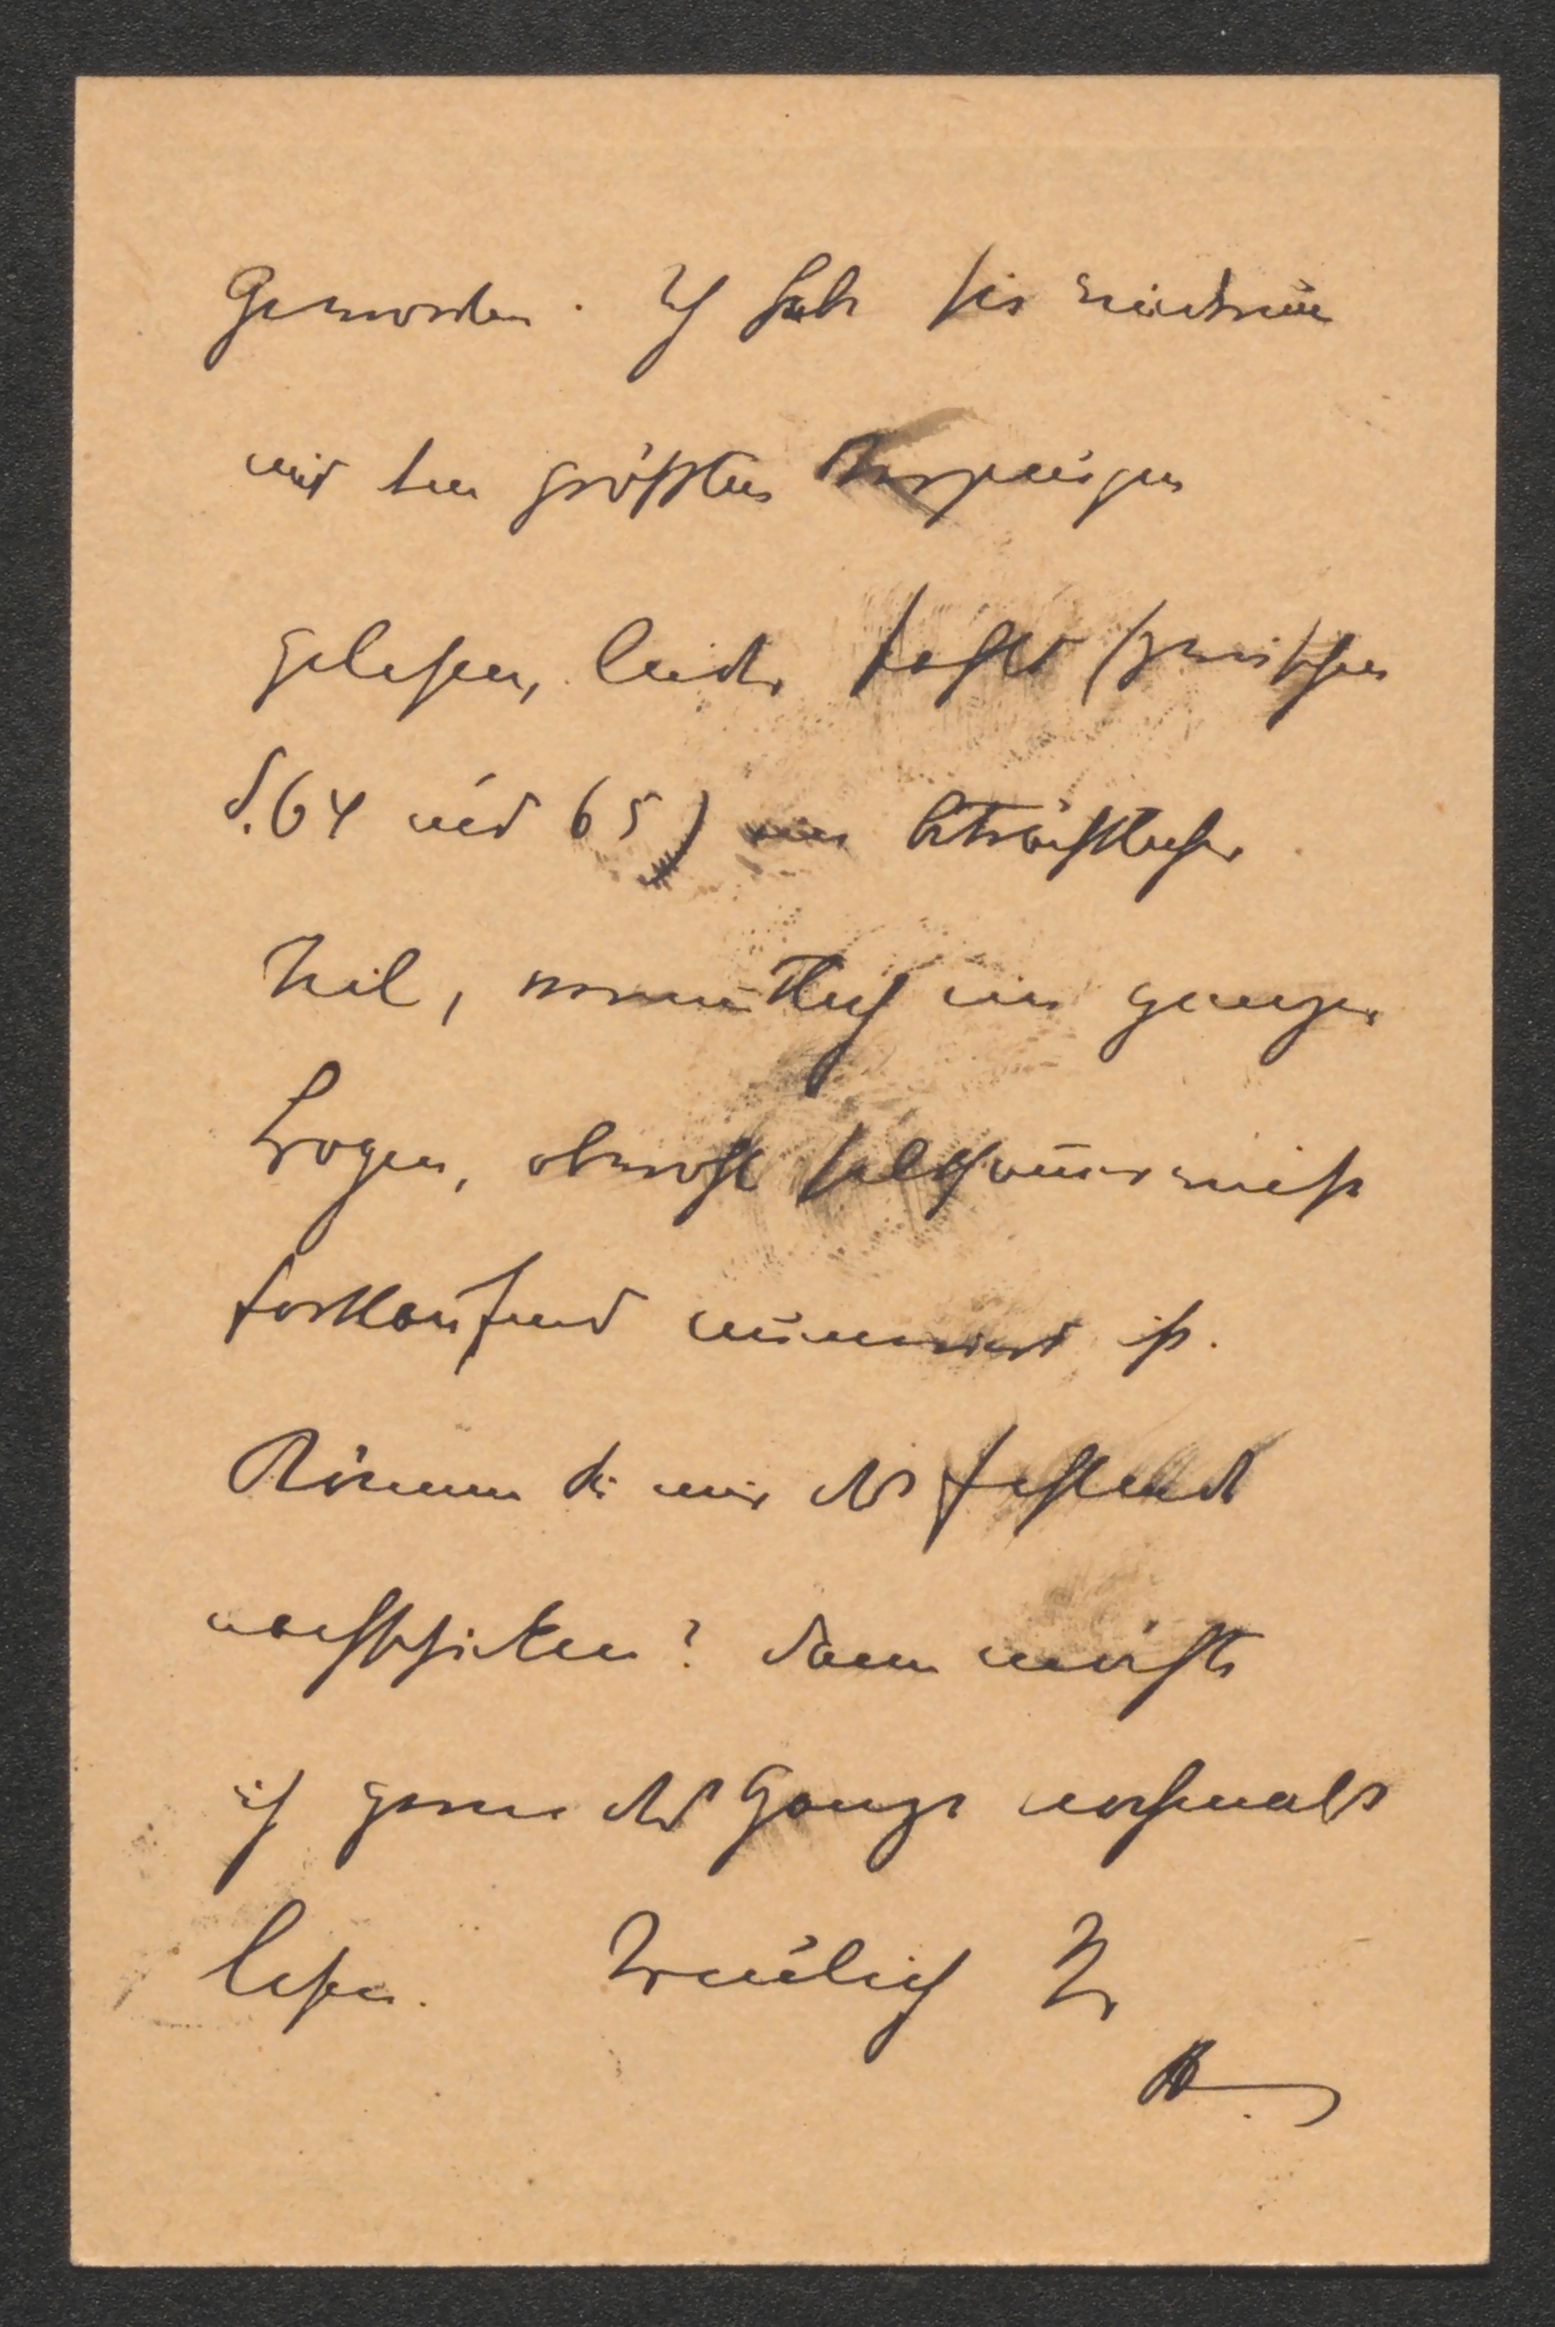 geworden. Ich habe sie wiederum
mit dem größten Vergnügen
gelesen, leider fehlt (zwischen
S. 64 und 65) ein beträchtlicher
Teil, vermutlich ein ganzer
Bogen, obwohl seltsamerweise
fortlaufend numeriert ist.
Können Sie mir das Fehlende
nachschicken? Dann möchte
ich gerne das Ganze nochmals
lesen. Treulich Ihr